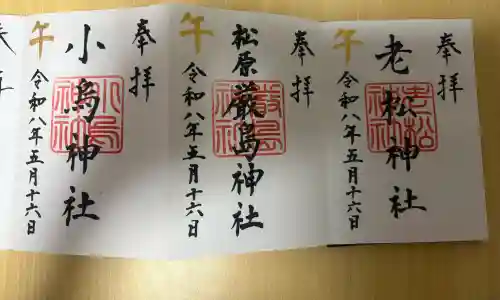 奉拝
老松神社
午
令和八年五月十六日
奉拝
松原
厳島神社
午
令和八年五月十六日
奉拝
小烏神社
午
令和八年五月十六日